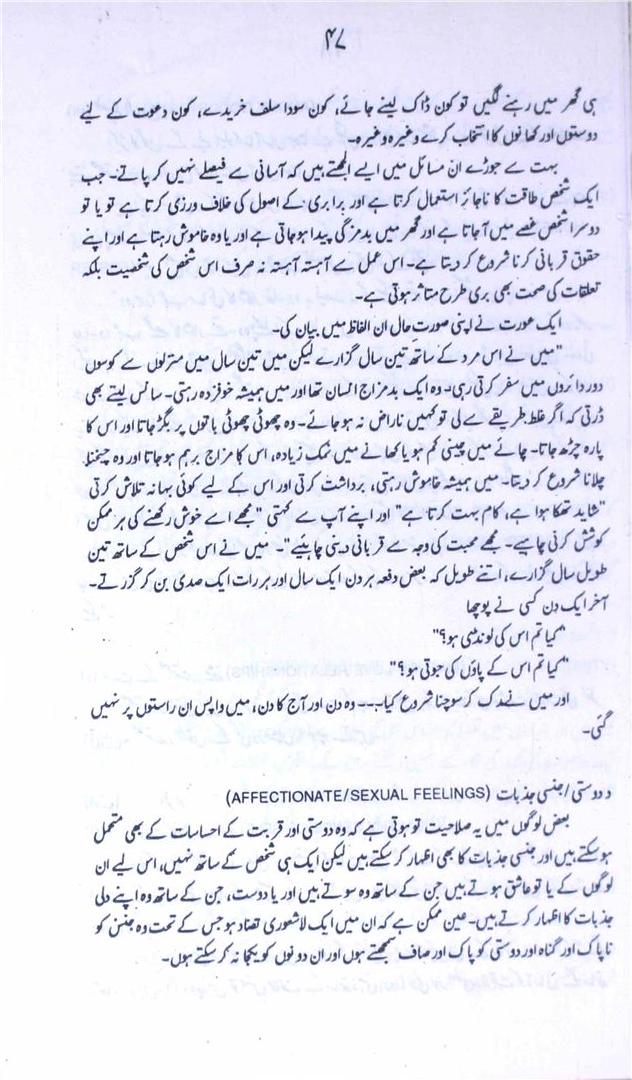 ۴۷
ہی گھر میں رہنے لگیں تو کون ڈاک لینے جائے، کون سودا سلف خریدے، کون دعوت کے لیے
دوستوں اور کھانوں کا انتخاب کرے وغیرہ وغیرہ۔
بہت سے جوڑے ان مسائل میں ایسے الجھتے ہیں کہ آسانی سے فیصلے نہیں کر پاتے۔ جب
ایک شخص طاقت کا ناجائز استعمال کرتا ہے اور برابری کے اصول کی خلاف ورزی کرتا ہے تو یا تو
دوسرا شخص غصے میں آ جاتا ہے اور گھر میں بدمزگی پیدا ہو جاتی ہے اور یا وہ خاموش رہتا ہے اور اپنے
حقوق قربانی کرنا شروع کر دیتا ہے۔ اس عمل سے آہستہ آہستہ نہ صرف اس شخص کی شخصیت بلکہ
تعلقات کی صحت بھی بری طرح متاثر ہوتی ہے۔
ایک عورت نے اپنی صورتِ حال ان الفاظ میں بیان کی۔
"میں نے اس مرد کے ساتھ تین سال گزارے لیکن میں تین سال میں منزلوں سے کوسوں
دور دائروں میں سفر کرتی رہی۔ وہ ایک بدمزاج انسان تھا اور میں ہمیشہ خوفزدہ رہتی۔ سانس لیتے بھی
ڈرتی کہ اگر غلط طریقے سے لی تو کہیں ناراض نہ ہو جائے۔ وہ چھوٹی چھوٹی باتوں پر بگڑ جاتا اور اس کا
پارہ چڑھ جاتا۔ چائے میں چینی کم ہو یا کھانے میں نمک زیادہ، اس کا مزاج برہم ہو جاتا اور وہ چیخنا
چلانا شروع کر دیتا۔ میں ہمیشہ خاموش رہتی، برداشت کرتی اور اس کے لیے کوئی بہانہ تلاش کرتی
"شاید تھکا ہوا ہے، کام بہت کرتا ہے" اور اپنے آپ سے کہتی "مجھے اسے خوش رکھنے کی ہر ممکن
کوشش کرنی چاہیے۔ مجھے محبت کی وجہ سے قربانی دینی چاہیئے"۔ میں نے اس شخص کے ساتھ تین
طویل سال گزارے، اتنے طویل کہ بعض دفعہ ہر دن ایک سال اور ہر رات ایک صدی بن کر گزرتے۔
آخر ایک دن کسی نے پوچھا
"کیا تم اس کی لونڈی ہو؟"
"کیا تم اس کے پاؤں کی جوتی ہو؟"
اور میں نے رک کر سوچنا شروع کیا۔۔۔ وہ دن اور آج کا دن، میں واپس ان راستوں پر نہیں
گئی۔
د دوستی / جنسی جذبات (AFFECTIONATE/SEXUAL FEELINGS)
بعض لوگوں میں یہ صلاحیت تو ہوتی ہے کہ وہ دوستی اور قربت کے احساسات کے بھی متحمل
ہو سکتے ہیں اور جنسی جذبات کا بھی اظہار کر سکتے ہیں لیکن ایک ہی شخص کے ساتھ نہیں، اس لیے ان
لوگوں کے یا تو عاشق ہوتے ہیں جن کے ساتھ وہ سوتے ہیں اور یا دوست، جن کے ساتھ وہ اپنے دلی
جذبات کا اظہار کرتے ہیں۔ عین ممکن ہے کہ ان میں ایک لاشعوری تضاد ہو جس کے تحت وہ جنس کو
ناپاک اور گناہ اور دوستی کو پاک اور صاف سمجھتے ہوں اور ان دونوں کو یکجا نہ کر سکتے ہوں۔